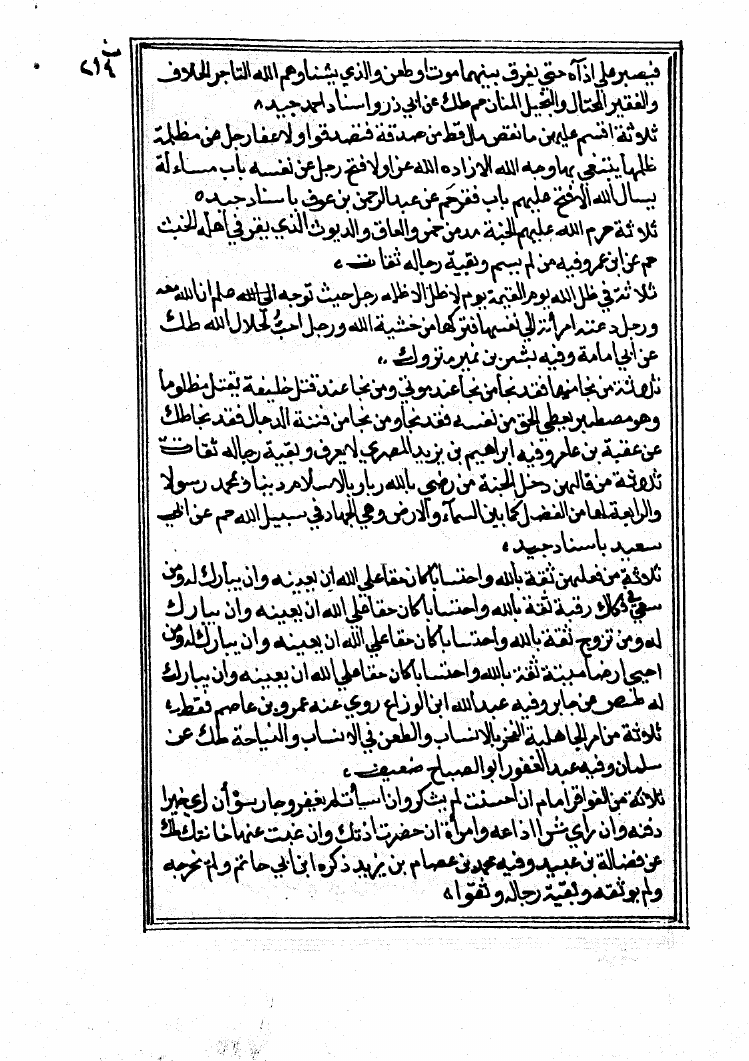 ٢١٩
فيصبر على اذاه حتى يفرق بينهما موت او ظعن والذي يشناوهم الله التاجر الحلاف
والفقير المختال والبخيل المنان حم طك عن ابي ذر واسناد احمد جيد
ثلاثة اقسم عليهن ما نقص مال قط من صدقة فتصدقوا ولا عفا رجل عن مظلمة
ظلمها يبتغي بها وجه الله الا زاده الله عزا ولا فتح رجل عن نفسه باب مساءلة
يسال الله الا فتح عليهم باب فقر حم عن عبد الرحمن بن عوف باسناد جيد
ثلاثة حرم الله عليهم الجنة مدمن خمر والعاق والديوث الذي يقر في أهله الخبث
حم عن ابن عمر وفيه من لم يسم وبقية رجاله ثقات
ثلاثة في ظل الله يوم القيمة يوم لا ظل الا ظله رجل حيث توجه الى الله علم ان الله معه
ورجل دعته امرأة الى نفسها فتركها من خشية الله ورجل احبَّ لجلال الله طك
عن ابي امامة وفيه بشر بن نمير متروك
ثلاثة من نجا منها فقد نجا من نجا عند موتي ومن نجا عند قتل خليفة يقتل مظلوما
وهو مصطبر يعطي الحق من نفسه فقد نجا ومن نجا من فتنة الدجال فقد نجا طك
عن عقبة بن عامر وفيه ابراهيم بن يزيد المصري لا يعرف وبقية رجاله ثقات
ثلاثة من قالهن دخل الجنة من رضي بالله ربا وبالاسلام دينا وبمحمد رسولا
والرابعة لها من الفضل كما بين السماء والارض وهي الجهاد في سبيل الله حم عن ابي
سعيد باسناد جيد
ثلاثة من فعلهن ثقة بالله واحتسابا كان حقا على الله ان يعينه وان يبارك له ومن
سعى في فكاك رقبة ثقة بالله واحتسابا كان حقا على الله ان يعينه وان يبارك
له ومن تزوج ثقة بالله واحتسابا كان حقا على الله ان يعينه وان يبارك له ومن
احيى ارضا ميتة ثقة بالله واحتسابا كان حقا على الله ان يعينه وان يبارك
له طص عن جابر وفيه عبد الله ابن الوزاع روي عنه عمرو بن عاصم فقط
ثلاثة من امر الجاهلية الفخر بالانساب والطعن في الانساب والنياحة طك عن
سلمان وفيه عبد الغفور ابو الصباح ضعيف
ثلاثة من الفواقر امام ان احسنت لم يشكر وان اسأت لم يغفر وجار سوء أن راي خيرا
دفنه وان راي شرا اذاعه وامرأة ان حضرت اذتك وان غبت عنها خانتك طك
عن فضالة بن عبيد وفيه محمد بن عصام بن يزيد ذكره ابن ابي حاتم ولم يخرجه
ولم يوثقه وبقية رجاله وثقوا